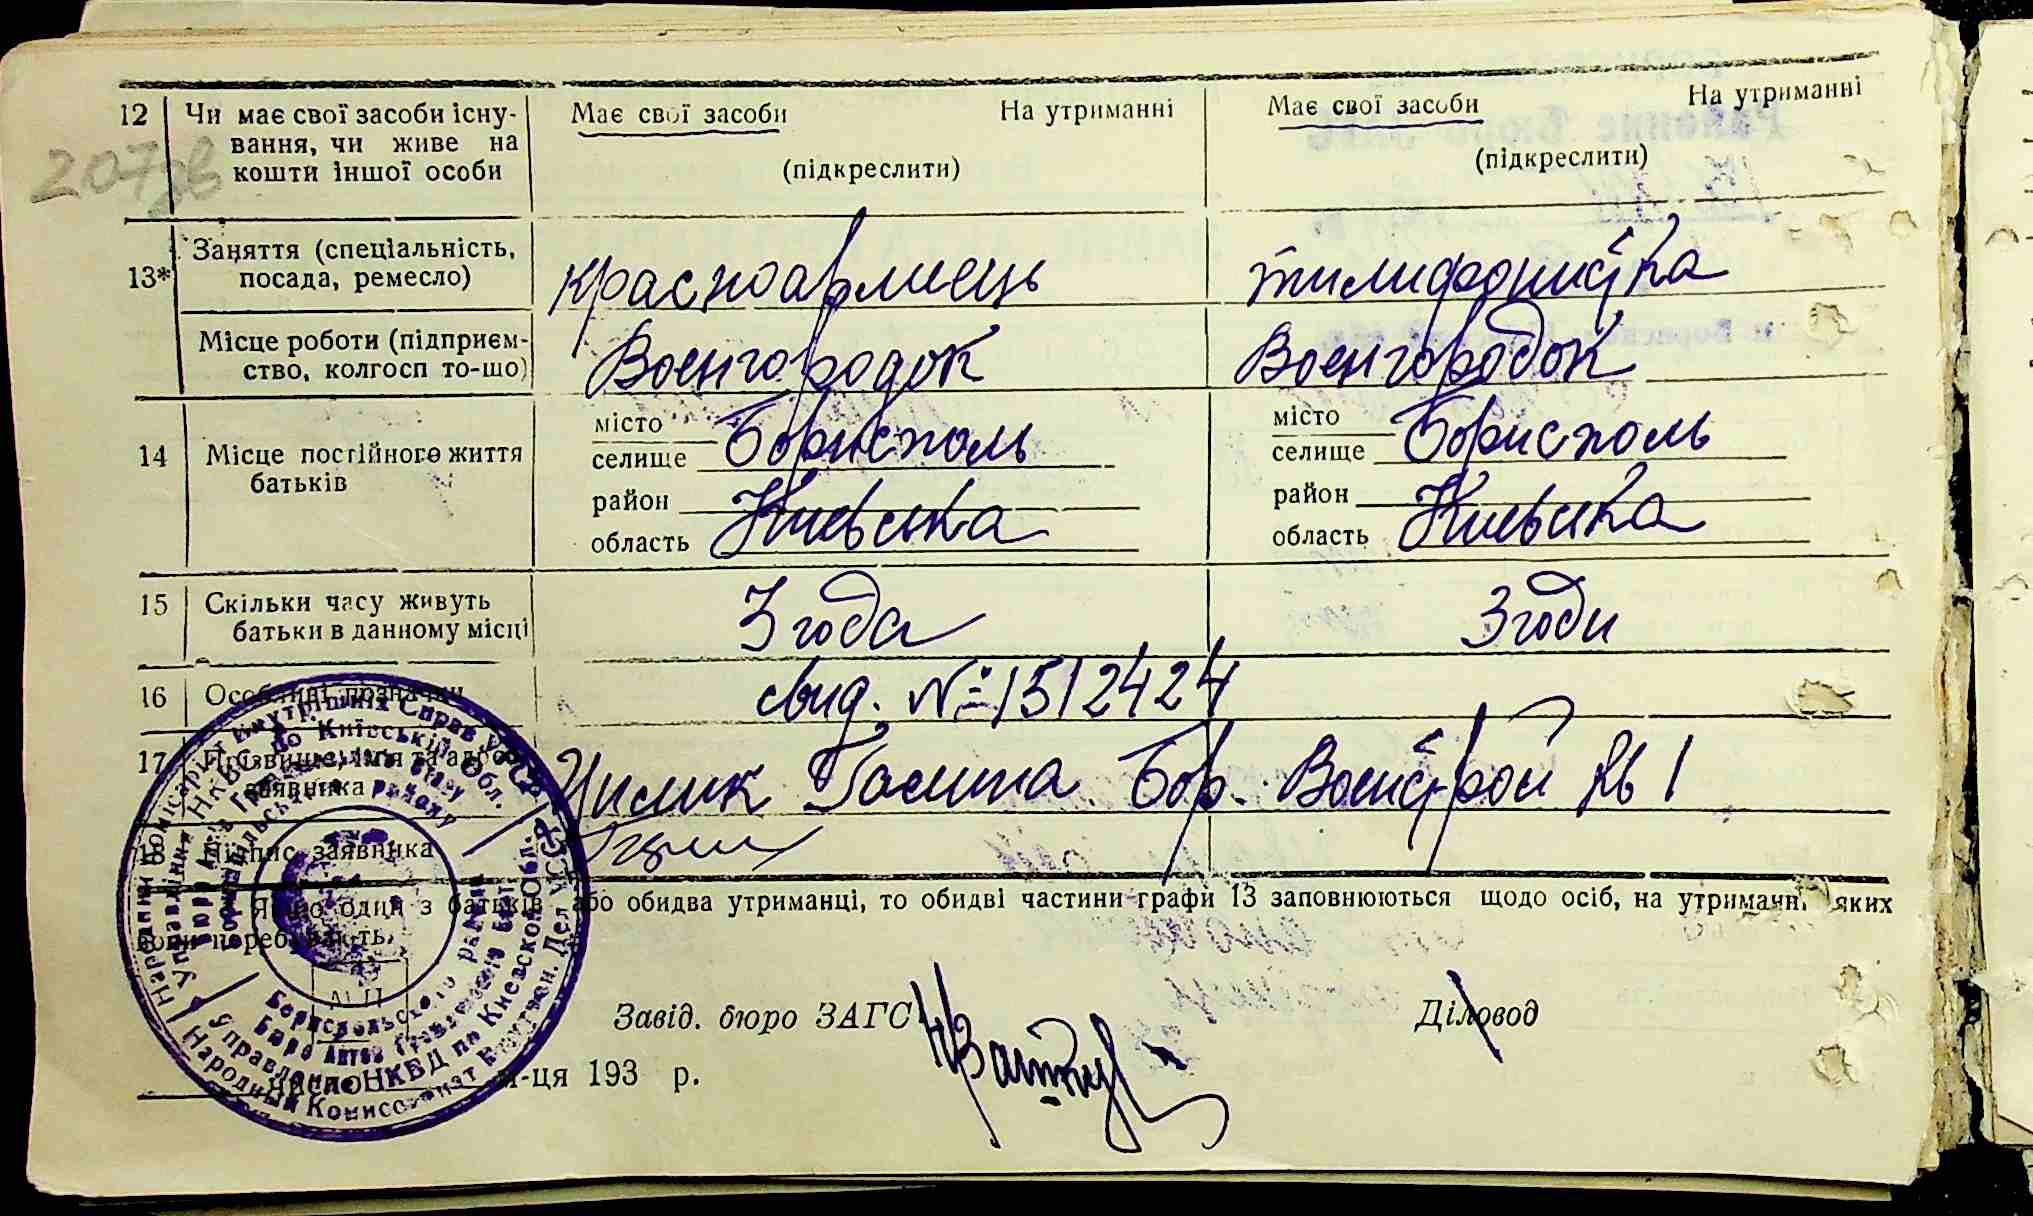 207зв
12 Чи має свої засоби існу- Має свої засоби На утриманні Має свої засоби На утриманні
вання, чи живе на
кошти іншої особи (підкреслити) (підкреслити)
13* Заняття (спеціальність,
посада, ремесло) красноармиець тилифоністка
Місце роботи (підприєм-
ство, колгосп то-що) Воєнгородок Воєнгородок
14 Місце постійного життя
батьків
місто місто
селище Борисполь селище Борисполь
район район
область Киевска область Киевска
15 Скільки часу живуть
батьки в данному місці 3 года 3 годи
16 Особливі позначки свид. № 1512424
17 Прізвище, імя та адреса
заявника Цилик Галина Бор. Воєнстрой № 1
18 Підпис заявника
Якщо один з батьків або обидва утриманці, то обидві частини графи 13 заповнюються щодо осіб, на утриманні яких
вони перебувають.
М.П.
Завід. бюро ЗАГС Діловод
числа м-ця 193 р.
Народній Комісаріят Внутрішніх Справ УРСР
Управління НКВС по Київській Обл.
Бюро Актів Громадянського стану
Бориспільського району
Народный Комиссариат Внутрен. Дел УССР
Управление НКВД по Киевской Обл.
Бюро Актов Гражданского Сост.
Бориспольского района